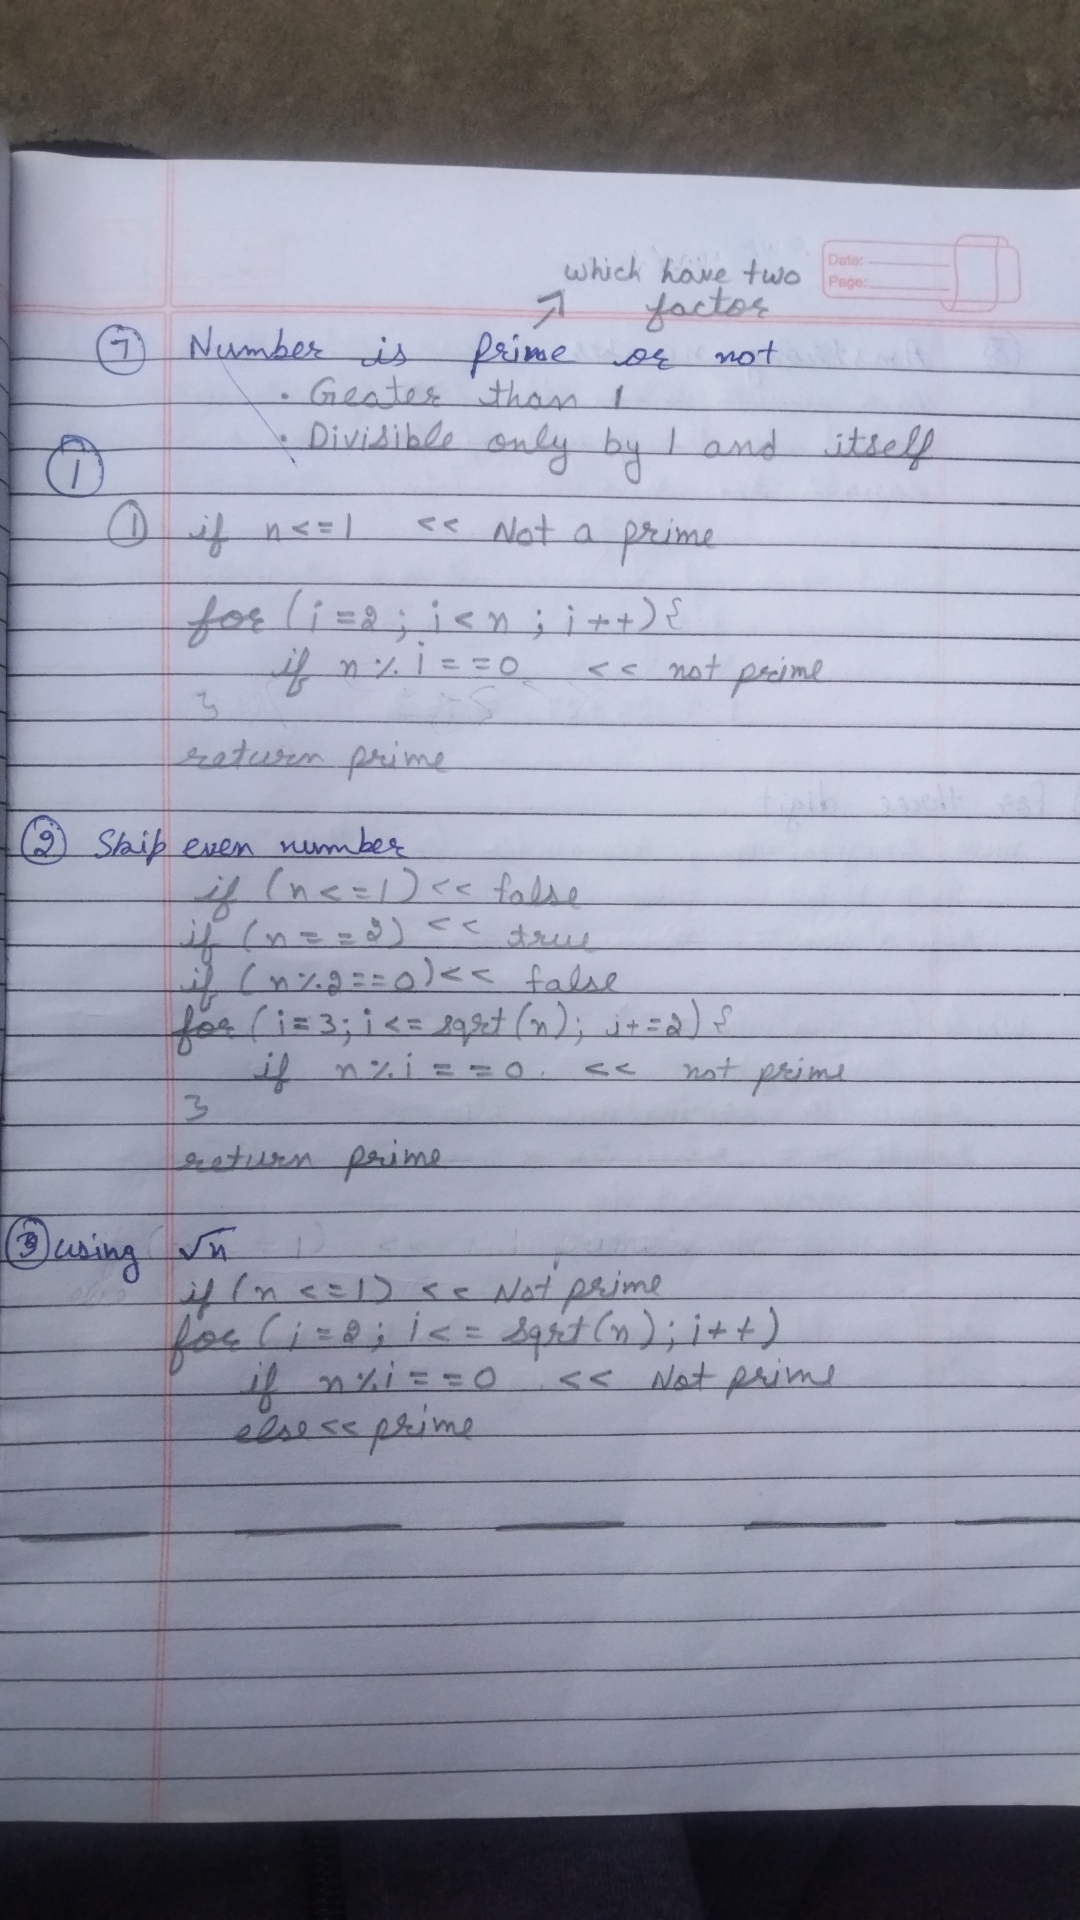 Date:
Page:
which have two
factor
7 Number is prime or not
• Greater than 1
• Divisible only by 1 and itself
1
1 if n<=1 << Not a prime
for (i=2; i<n; i++){
if n%i==0 << not prime
}
return prime
2 Skip even number
if (n<=1) << false
if (n==2) << true
if (n%2==0) << false
for (i=3; i<=sqrt(n); i+=2) {
if n%i==0. << not prime
}
return prime
3 using √n
if (n<=1) << Not prime
for (i=2; i<=sqrt(n); i++)
if n%i==0 << Not prime
else << prime